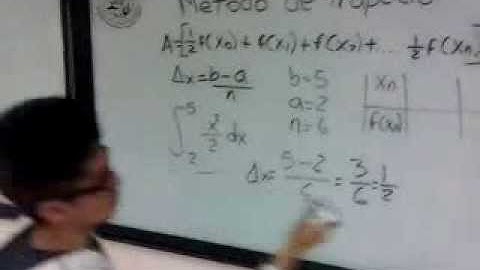 Método de Trapecio
A=[½f(x₀)+f(x₁)+f(x₂)+... ½f(xₙ)]
Δx=b-a/n b=5 |Xn|
a=2 |f(x)|
n=6
∫₂⁵ x²/2 dx
Δx=5-2/6=3/6=1/2